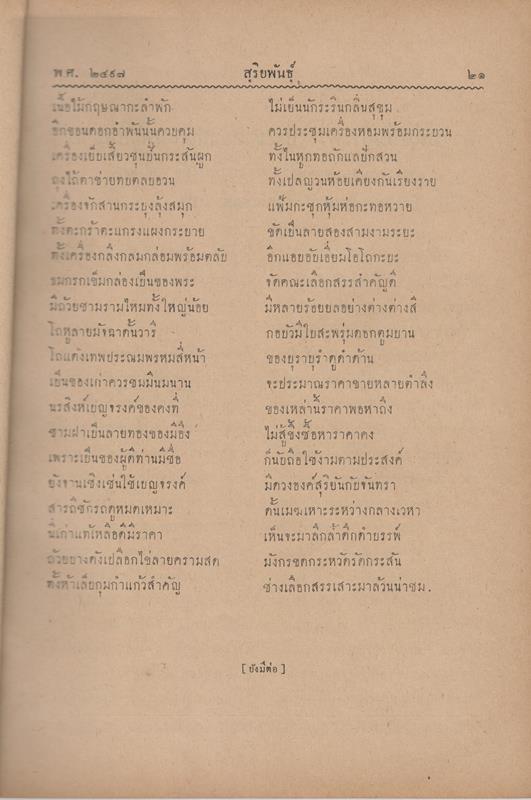 พ.ศ. ๒๔๙๗ สุริยพันธุ์ ๒๑
เนื้อไม้กฤษณากะลำพัก ไม่เย็นนักระรินกลิ่นสุขุม
อีกซอนดอกอำพันนั้นควบคุม ควรประชุมเครื่องหอมพร้อมกระบวน
เครื่องเย็บเสี้ยวซุนยี่นกระสันผูก ทั้งในหูกทอถักแลปักสวน
ถุงไถ้ตาข่ายทบตลบอวน ทั้งเปลญวนห้อยเคียงกันเรียงราย
เครื่องจักสานกระบุงลุ้งสมุก แฟ้มกะชุกหุ้มห่อกะทอหวาย
ทั้งตะกร้าตะแกรงแผงกระบาย ขัดเป็นลายสองสามงามระยะ
ทั้งเครื่องกลึงกลมกล่อมพร้อมตลับ อีกแอบอับเอี่ยมโอโถกะบะ
ชมกรกเข็มกล่องเป็นของพระ จัดคณะเลือกสรรสำคัญดี
มีถ้วยชามรามไหมทั้งใหญ่น้อย มีหลายร้อยยลอย่างต่างต่างสี
โถหูลายมังฉาดั้นวารี กอบัวมีใบสะพรุ่มดอกตูมบาน
โถแต้งเทพประณมพรหมสี่หน้า ของบุราบุรำดูดำด้าน
เป็นของเก่าควรชมมีนมนาน จะประมาณราคาขายหลายตำลึง
นรสิงห์เบญจรงค์ของคงที่ ของเหล่านี้ราคาพอหาถึง
ชามฝาเป็นลายทองของมีอึ่ง ไม่สู้ซึ้งซื้อหาราคาคง
เพราะเป็นของผู้ดีท่านมีชื่อ ก็นับถือใช้งามตามประสงค์
ยังจานเชิงเช่นใช้เบญจรงค์ มีดวงองค์สุริยันกับจันทรา
สารถีชักรถดูหมดเหมาะ ดั้นเมฆเหาะระหว่างกลางเวหา
นี่เก่าแท้เหลือดีมีราคา เห็นจะมาลึกล้ำดึกดำบรรพ์
ถ้วยบางดังเปลือกไข่ลายครามสด มังกรขดกระหวัดรัดกระสัน
ตั้งห้าเล็บกุมกำแก้วสำคัญ ช่างเลือกสรรเสาะมาล้วนน่าชม.
[ ยังมีต่อ ]